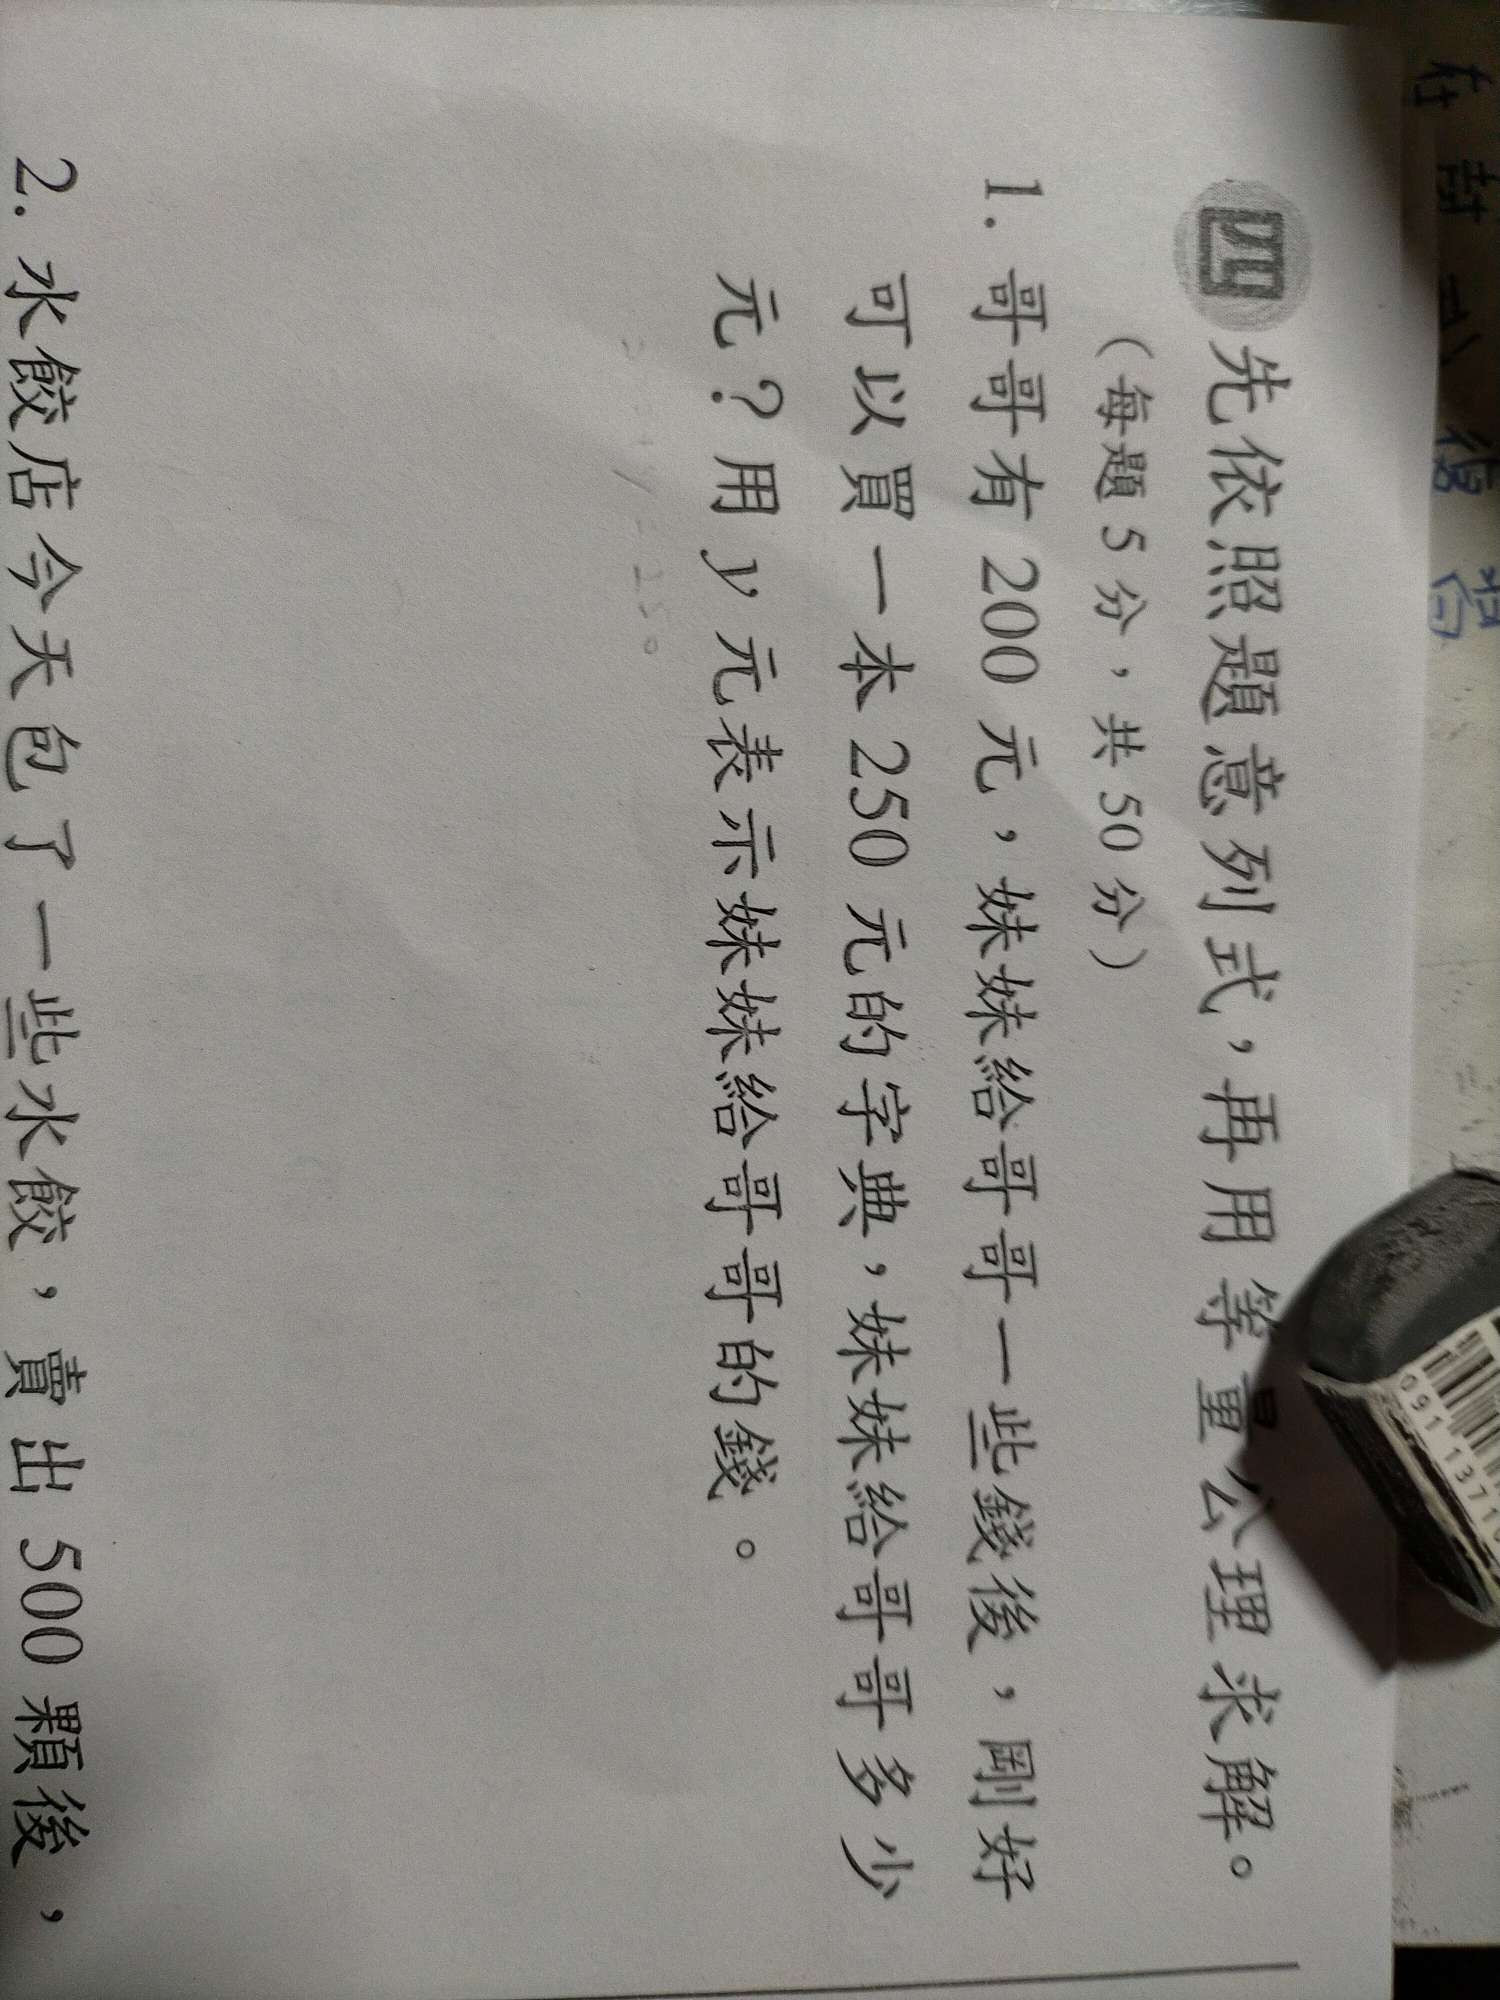 四 先依照題意列式，再用等量公理求解。
（每題5分，共50分）
1. 哥哥有200元，妹妹給哥哥一些錢後，剛好
可以買一本250元的字典，妹妹給哥哥多少
元？用y元表示妹妹給哥哥的錢。
2. 水餃店今天包了一些水餃，賣出500顆後，